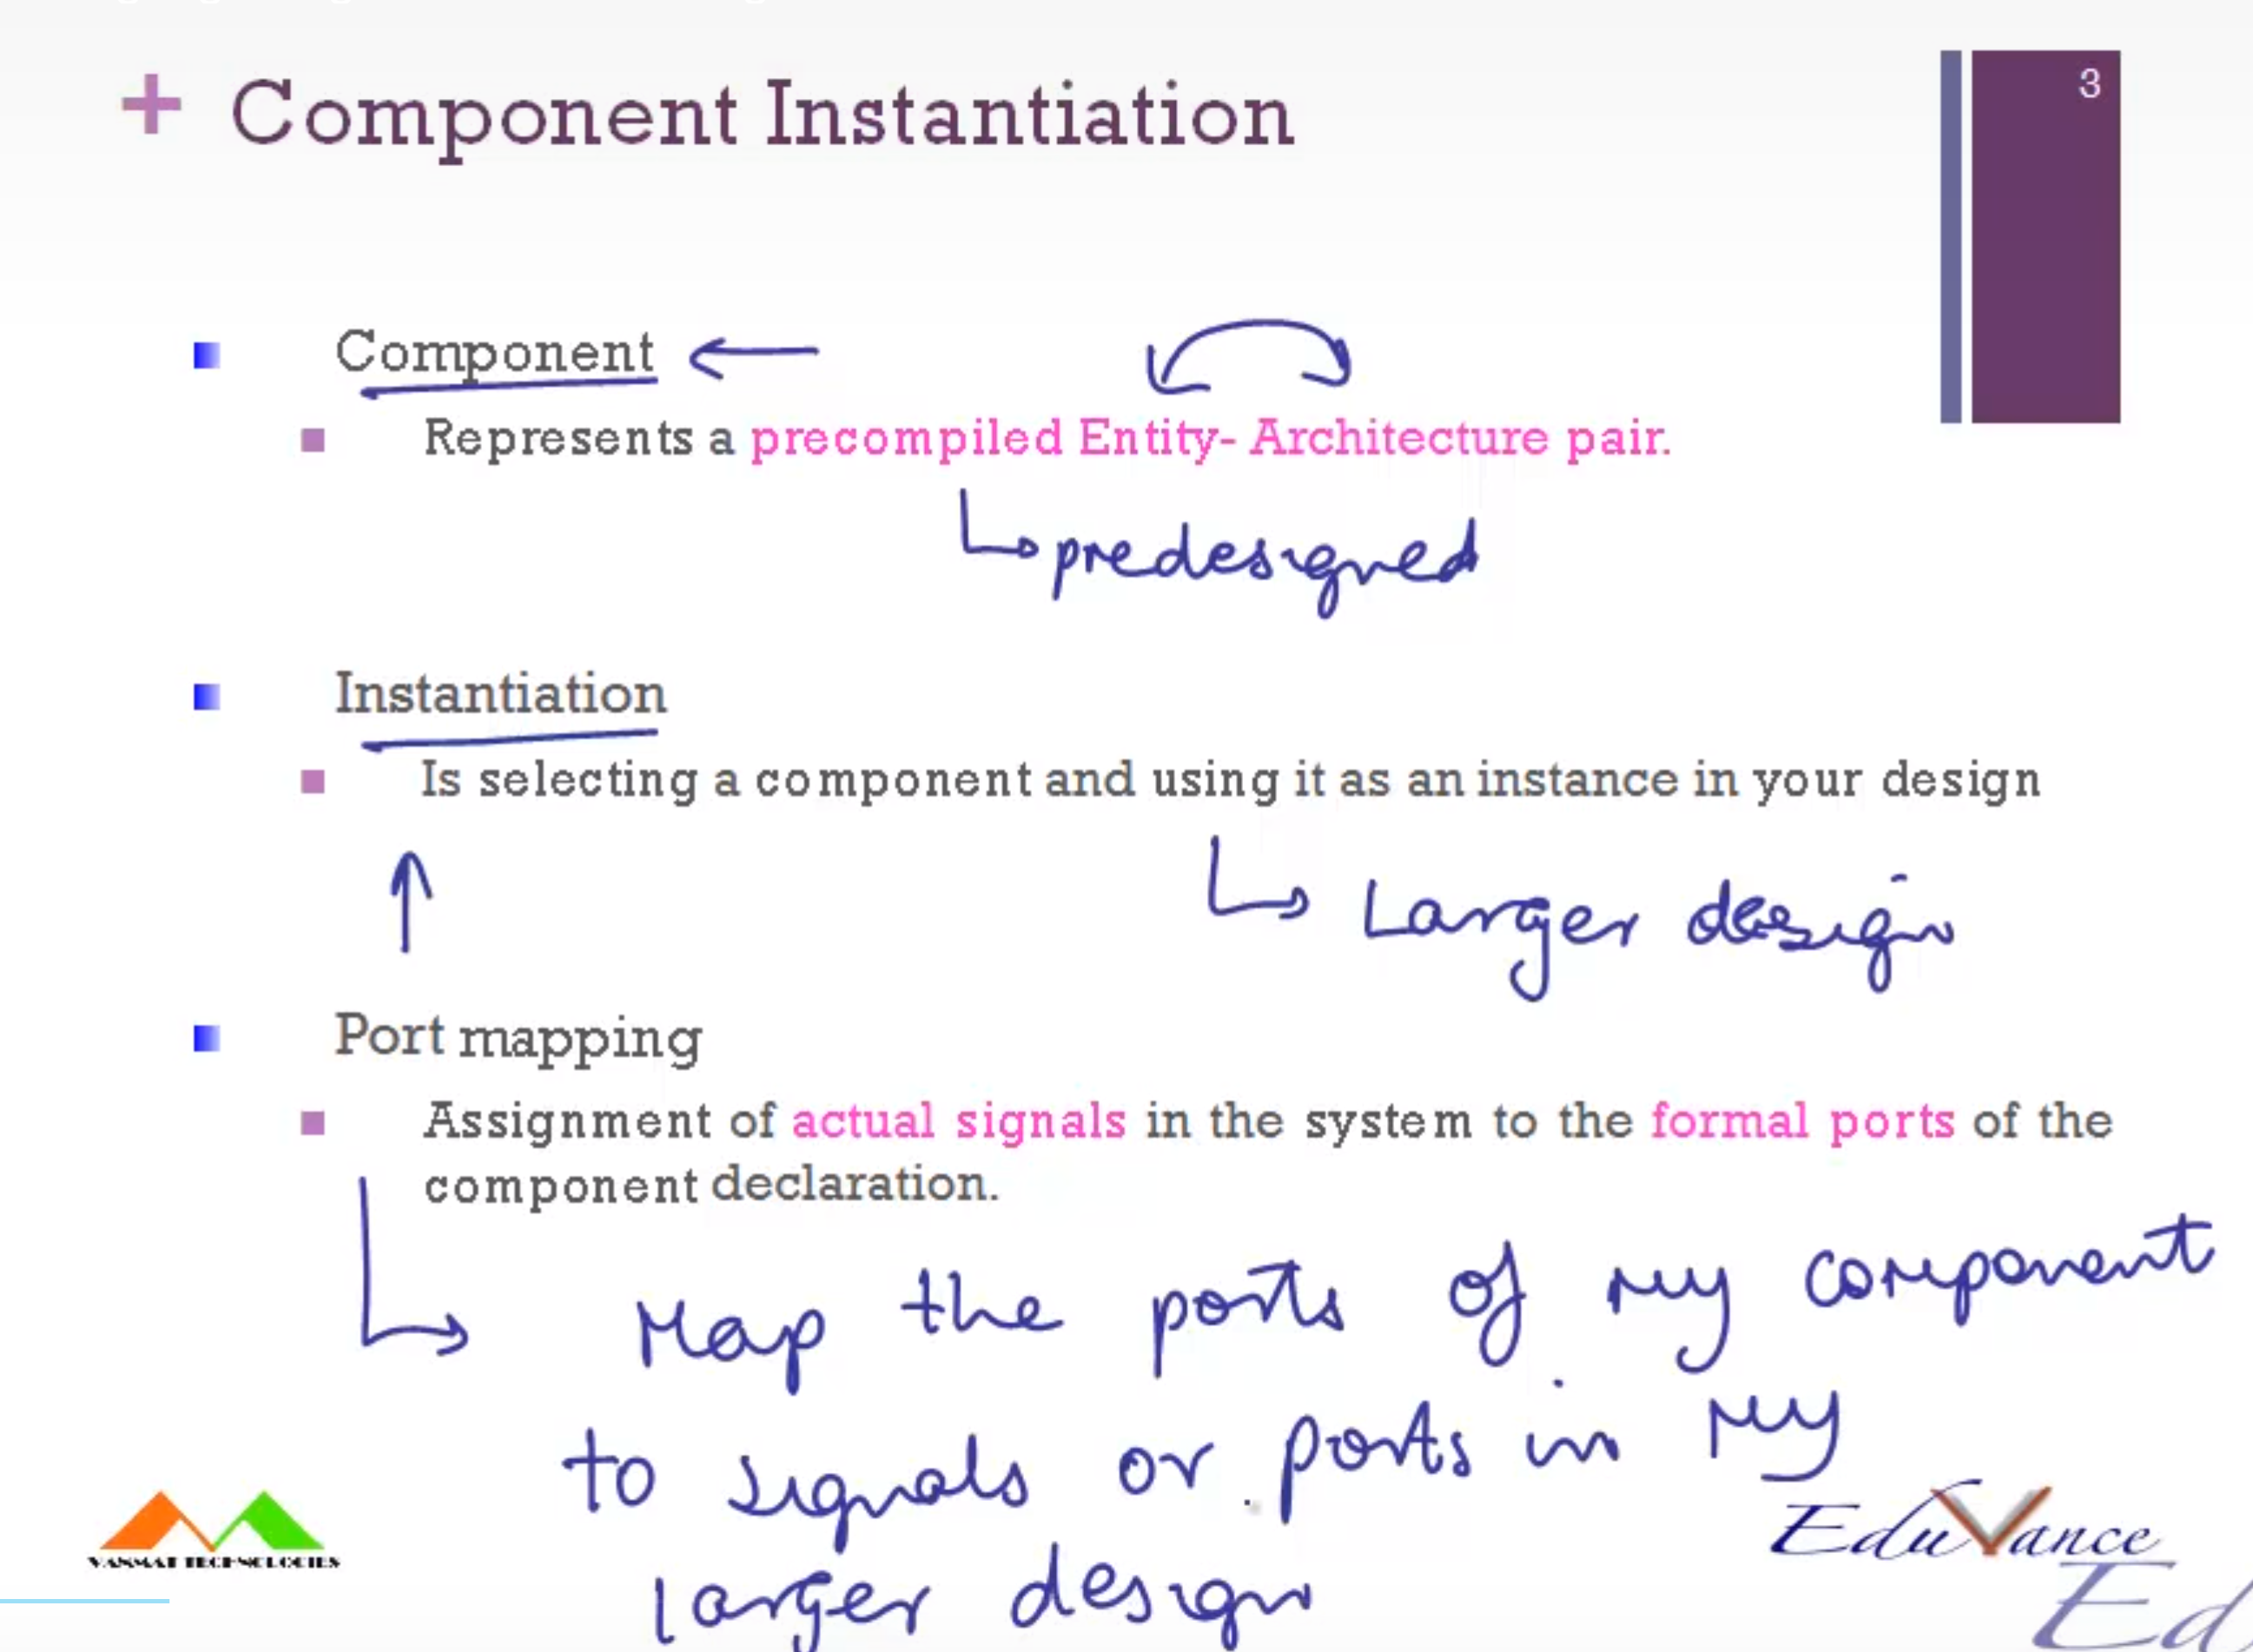 + Component Instantiation
3
Component
Represents a precompiled Entity- Architecture pair.
predesigned
Instantiation
Is selecting a component and using it as an instance in your design
Larger design
Port mapping
Assignment of actual signals in the system to the formal ports of the
component declaration.
Map the ports of my component
to signals or ports in my
larger design
VANMAT TECHNOLOGIES
EduVance
Ed